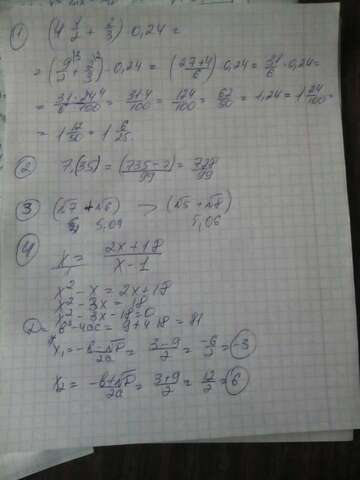 1 (4 1/2 + 2/3) · 0,24 =
= (9/2 + 2/3) · 0,24 = (27+4)/6 · 0,24 = 31/6 · 0,24 =
= 31·24/6·100 = 31·4/100 = 124/100 = 62/50 = 1,24 = 1 24/100 =
= 1 12/50 = 1 6/25
2 7,(35) = (735-7)/99 = 728/99
3 (√7 + √6) > (√5 + √8)
5,09 5,06
4 x = (2x+18)/(x-1)
x² - x = 2x+18
x² - 3x = 18
x² - 3x - 18 = 0
D = b² - 4ac = 9 + 4·18 = 81
x₁ = (-b-√D)/2a = (3-9)/2 = -6/2 = -3
x₂ = (-b+√D)/2a = (3+9)/2 = 12/2 = 6